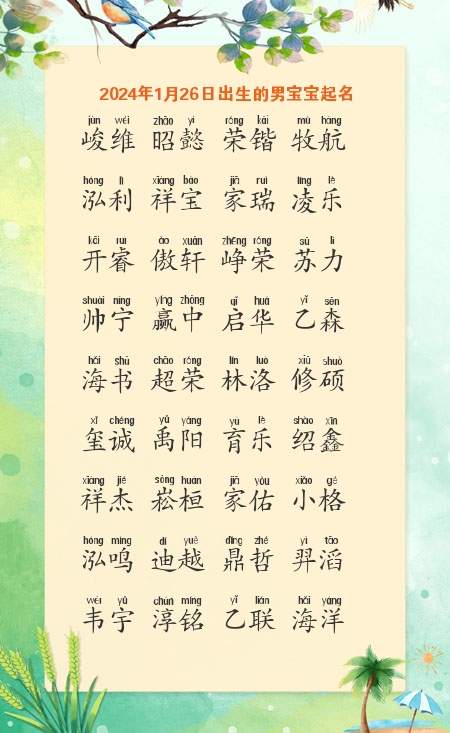 2024年1月26日出生的男宝宝起名
jùn wéi zhāo yì róng kǎi mù háng
峻维 昭懿 荣锴 牧航
hóng lì xiáng bǎo jiā ruì líng lè
泓利 祥宝 家瑞 凌乐
kāi ruì ào xuān zhēng róng sū lì
开睿 傲轩 峥荣 苏力
shuài níng yíng zhōng qǐ huá yǐ sēn
帅宁 赢中 启华 乙森
hǎi shū chāo róng lín luò xiū shuò
海书 超荣 林洛 修硕
xǐ chéng yǔ yáng yù lè shào xīn
玺诚 禹阳 育乐 绍鑫
xiáng jié sōng huán jiā yòu xiǎo gé
祥杰 崧桓 家佑 小格
hóng míng dí yuè dǐng zhé yì tāo
泓鸣 迪越 鼎哲 羿滔
wéi yǔ chún míng yǐ lián hǎi yáng
韦宇 淳铭 乙联 海洋